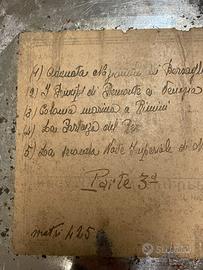 1) Adunata
2) I Principi di Piemonte a Venezia
3) Colonia marina a Rimini
4) La Partenza del
5) La seconda Nave Imperiale di
Parte 3ª
metri 425
subito